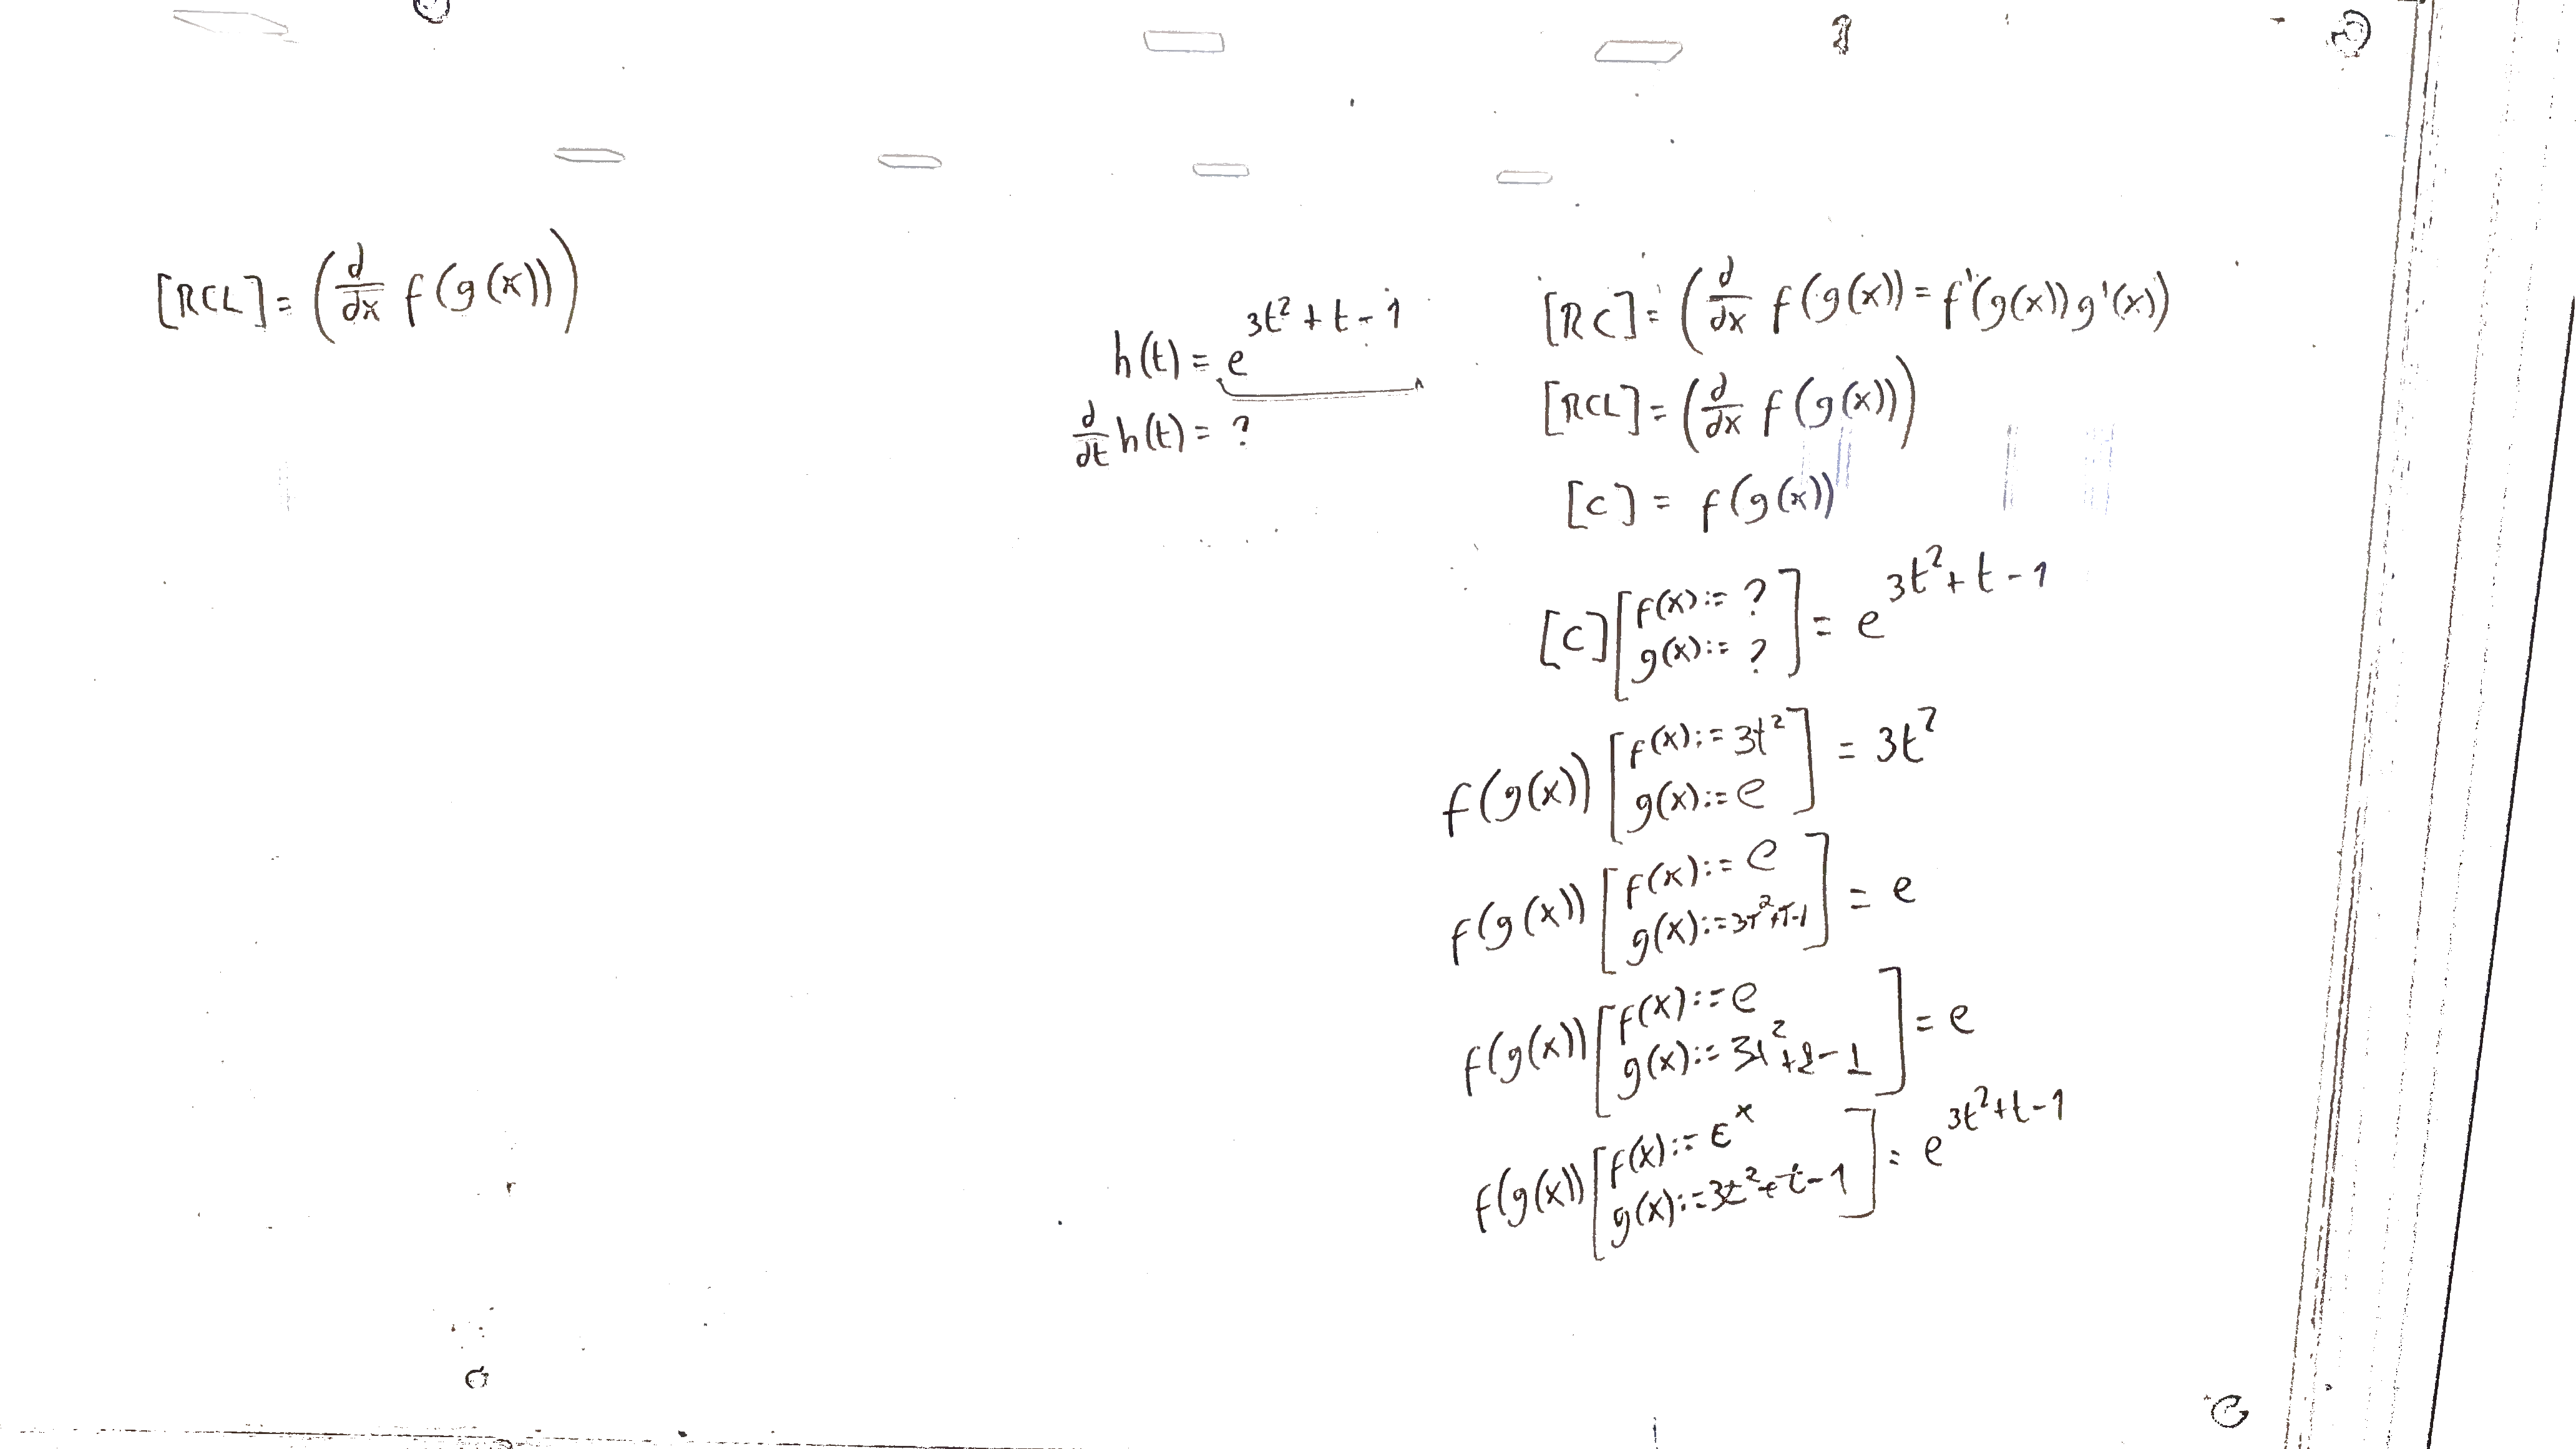 [RCL] = (d/dx f(g(x)))
h(t) = e^{3t²+t-1}
d/dt h(t) = ?
[RC] = (d/dx f(g(x)) = f'(g(x))g'(x))
[RCL] = (d/dx f(g(x)))
[C] = f(g(x))
[C][f(x):=? g(x):=?] = e^{3t²+t-1}
f(g(x))[f(x):=3t² g(x):=e] = 3t²
f(g(x))[f(x):=e g(x):=3t²+t-1] = e
f(g(x))[f(x):=e g(x):=3t²+t-1] = e
f(g(x))[f(x):=e^x g(x):=3t²+t-1] = e^{3t²+t-1}